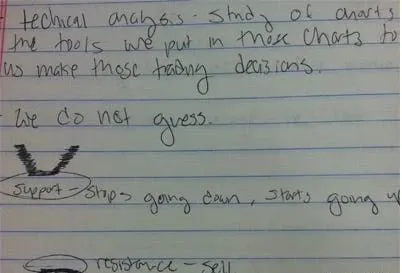 technical analysis - study of charts
the tools we put in those charts to
us make those trading decisions.
- We do not guess.
support - stops going down, starts going u
resistance - sell